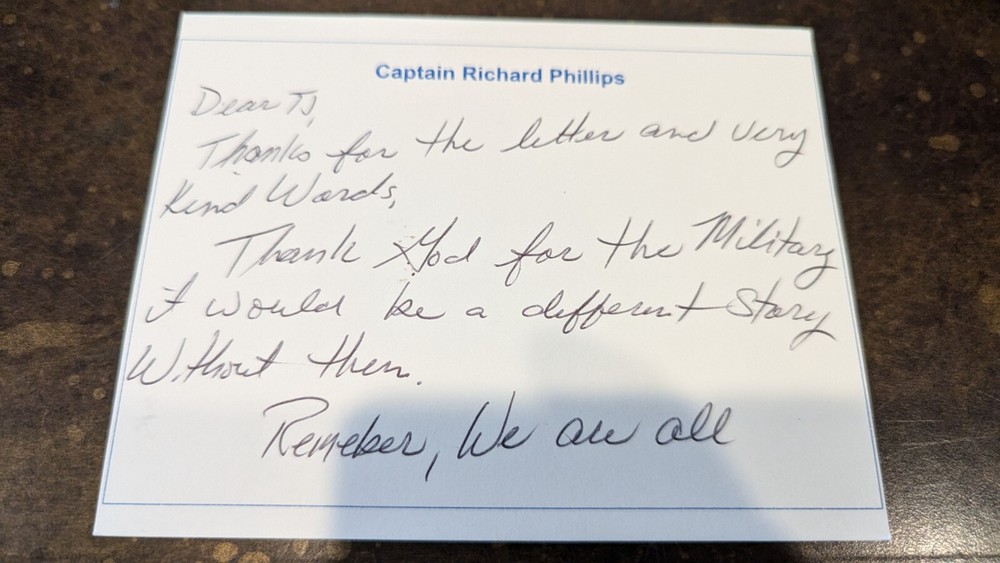 Captain Richard Phillips
Dear TJ,
Thanks for the letter and very
Kind Words,
Thank God for the Military
it would be a different story
Without them.
Remeber, We are all